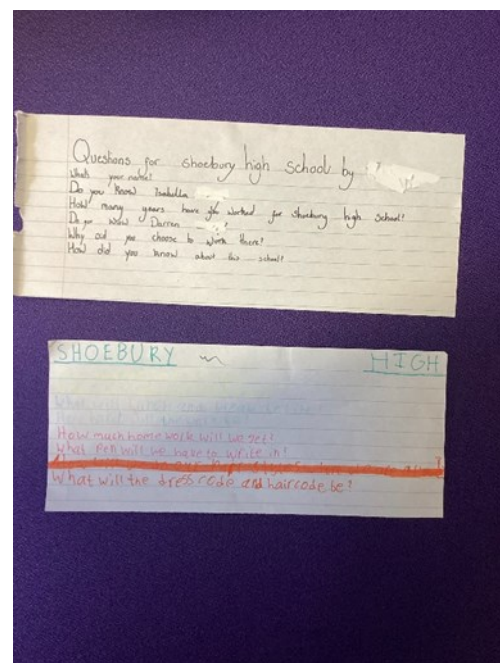 Questions for Shoebury high school by
Whats your name?
Do you Know Isabella
How many years have you worked for Shoebury high school?
Do you know Darren ?
Why did you choose to work there?
How did you know about this school?
SHOEBURY HIGH
How much home work will we get?
What Pen will we have to write in?
What will the dress code and haircode be?